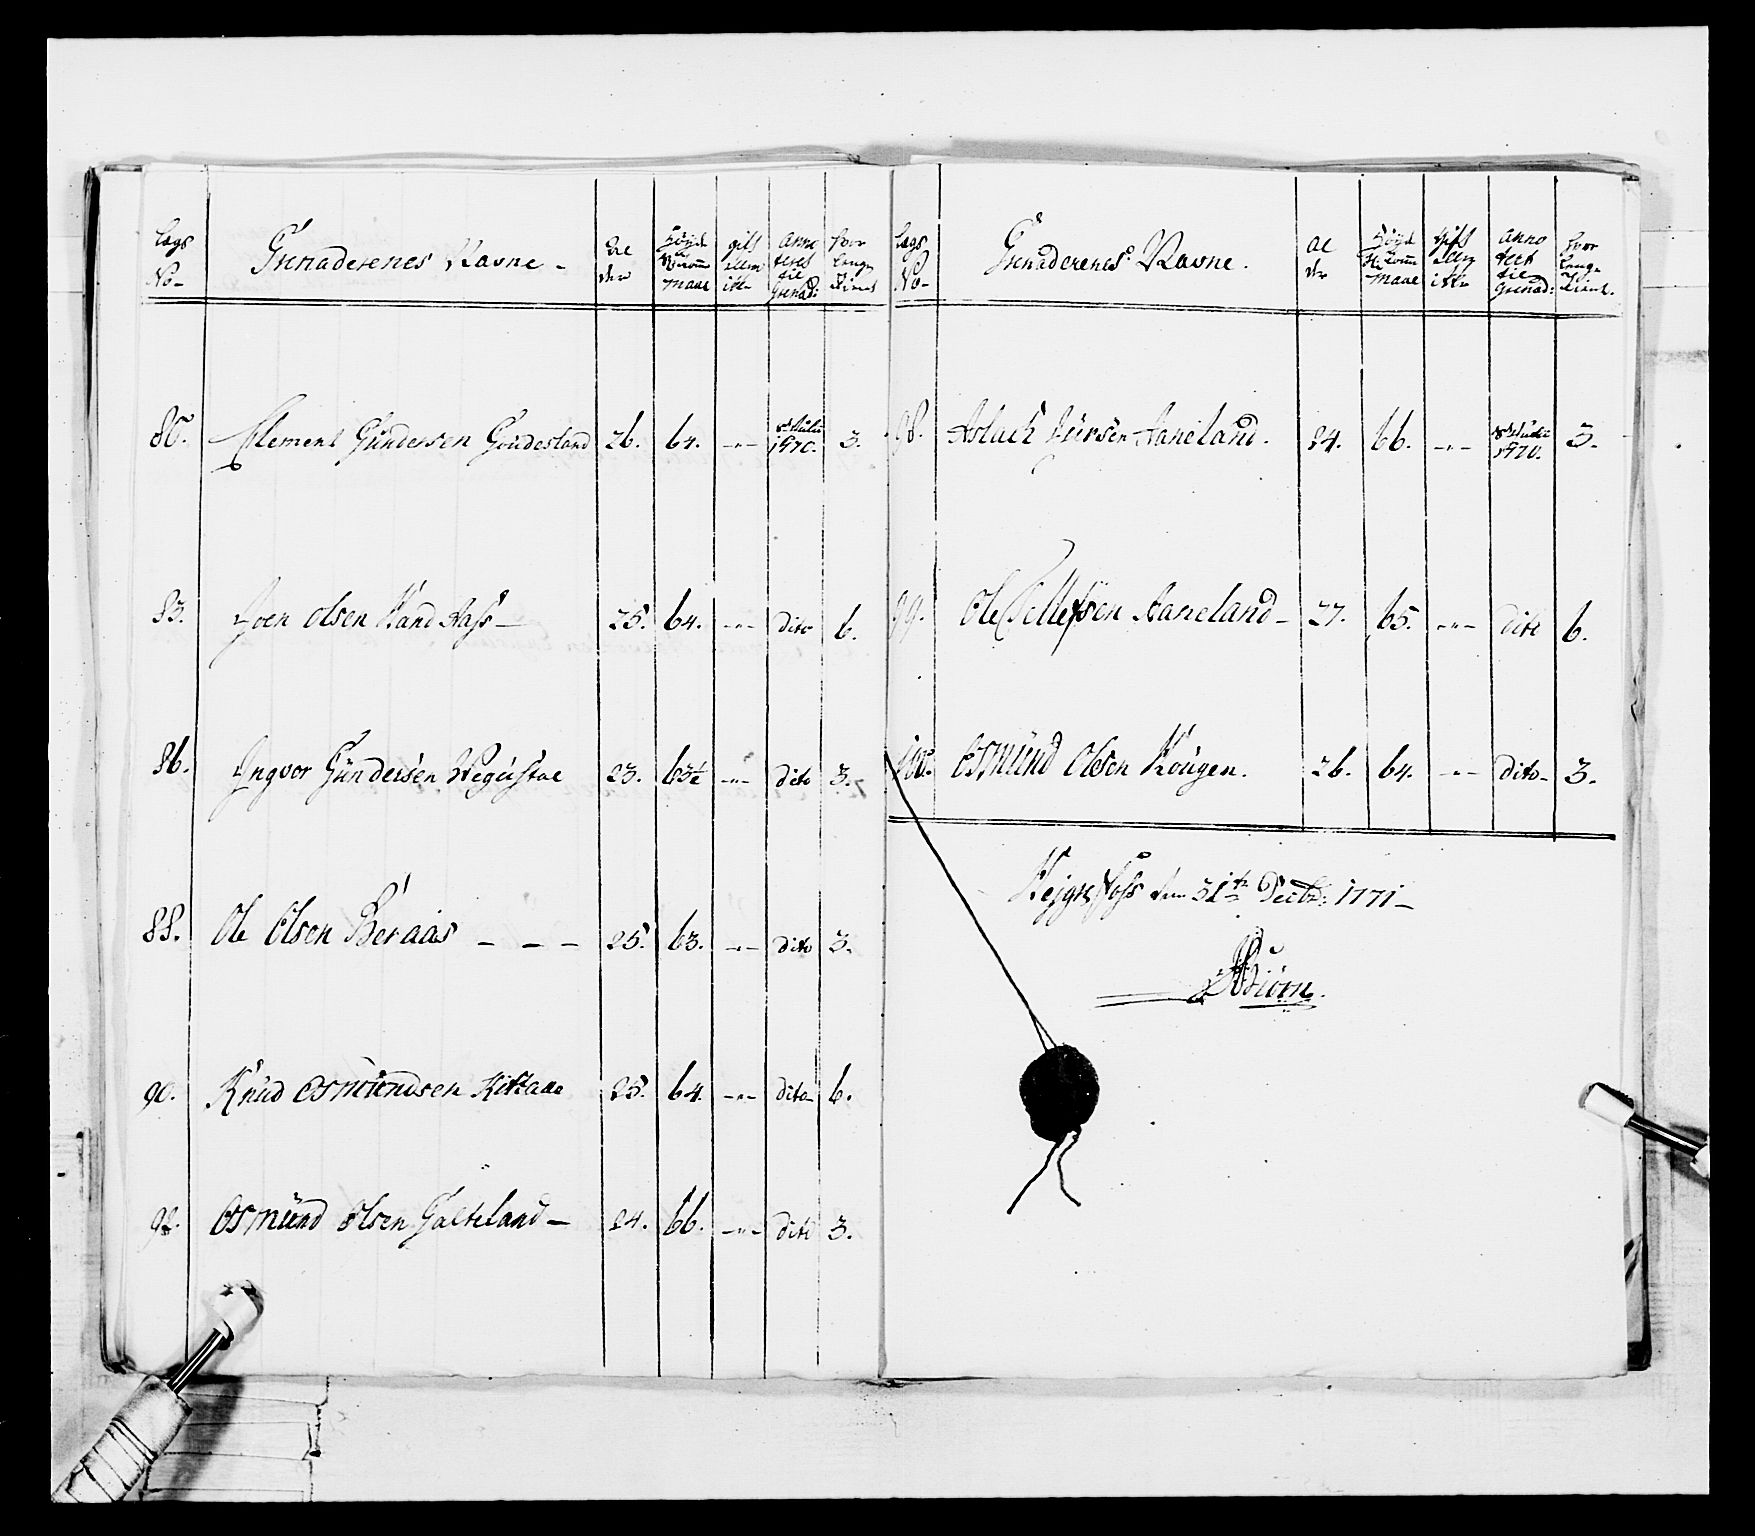 Lægs No- Grenaderenes Navne - Al der Höyd Maae gift eller ikke Anno Grenad: hvor længe tient
80. Clement Gundersen Goudesland 26. 64. -"- 1770. 3.
83. Joen Olsen 25. 64. -"- dito 6.
86. Ingvor Gundersen 23. 63½ -"- dito 3.
88. Ole Olsen Beraas - - - 25. 63. -"- dito 3.
90. Knud Osmundsen 25. 64. -"- dito 6.
92. Osmund Olsen Galteland - 24. 66. -"- dito 3.
Lægs No- Grenaderenes Navne. Al der Höyd Maae gift eller ikke Anno Grenad: hvor længe tient.
98. Aslach Aaneland. 24. 66. -"- 1770. 3.
99. Ole Tellefsen Aaneland - 27. 65. -"- dito 6.
100. Osmund Olsen Kougen. 26. 64. -"- dito- 3.
den 31te Decbr: 1771-